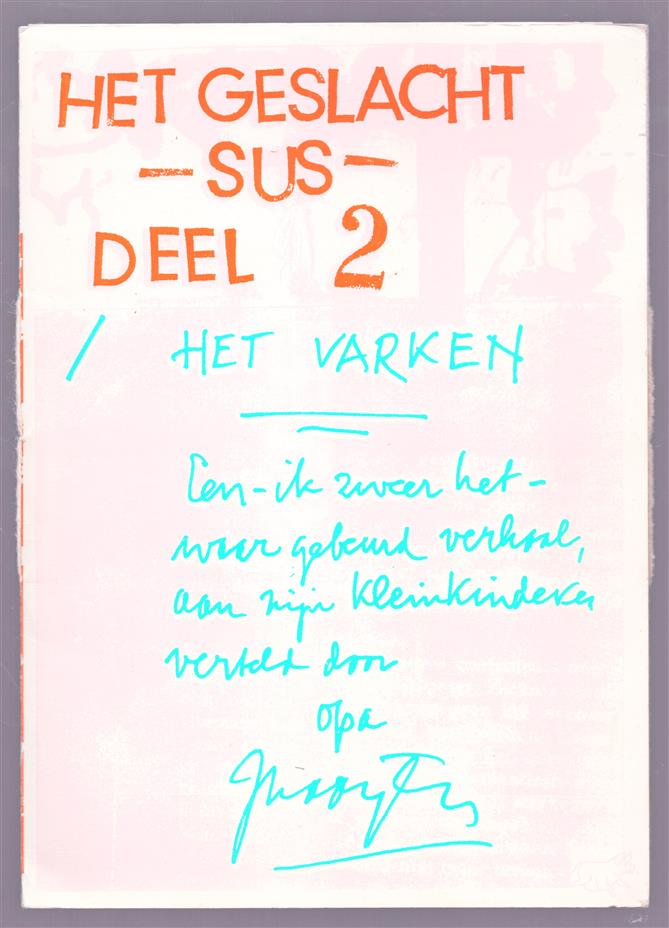 HET GESLACHT
– SUS –
DEEL 2
/ HET VARKEN
Een – ik zweer het –
waar gebeurd verhaal,
aan zijn kleinkinderen
verteld door
opa